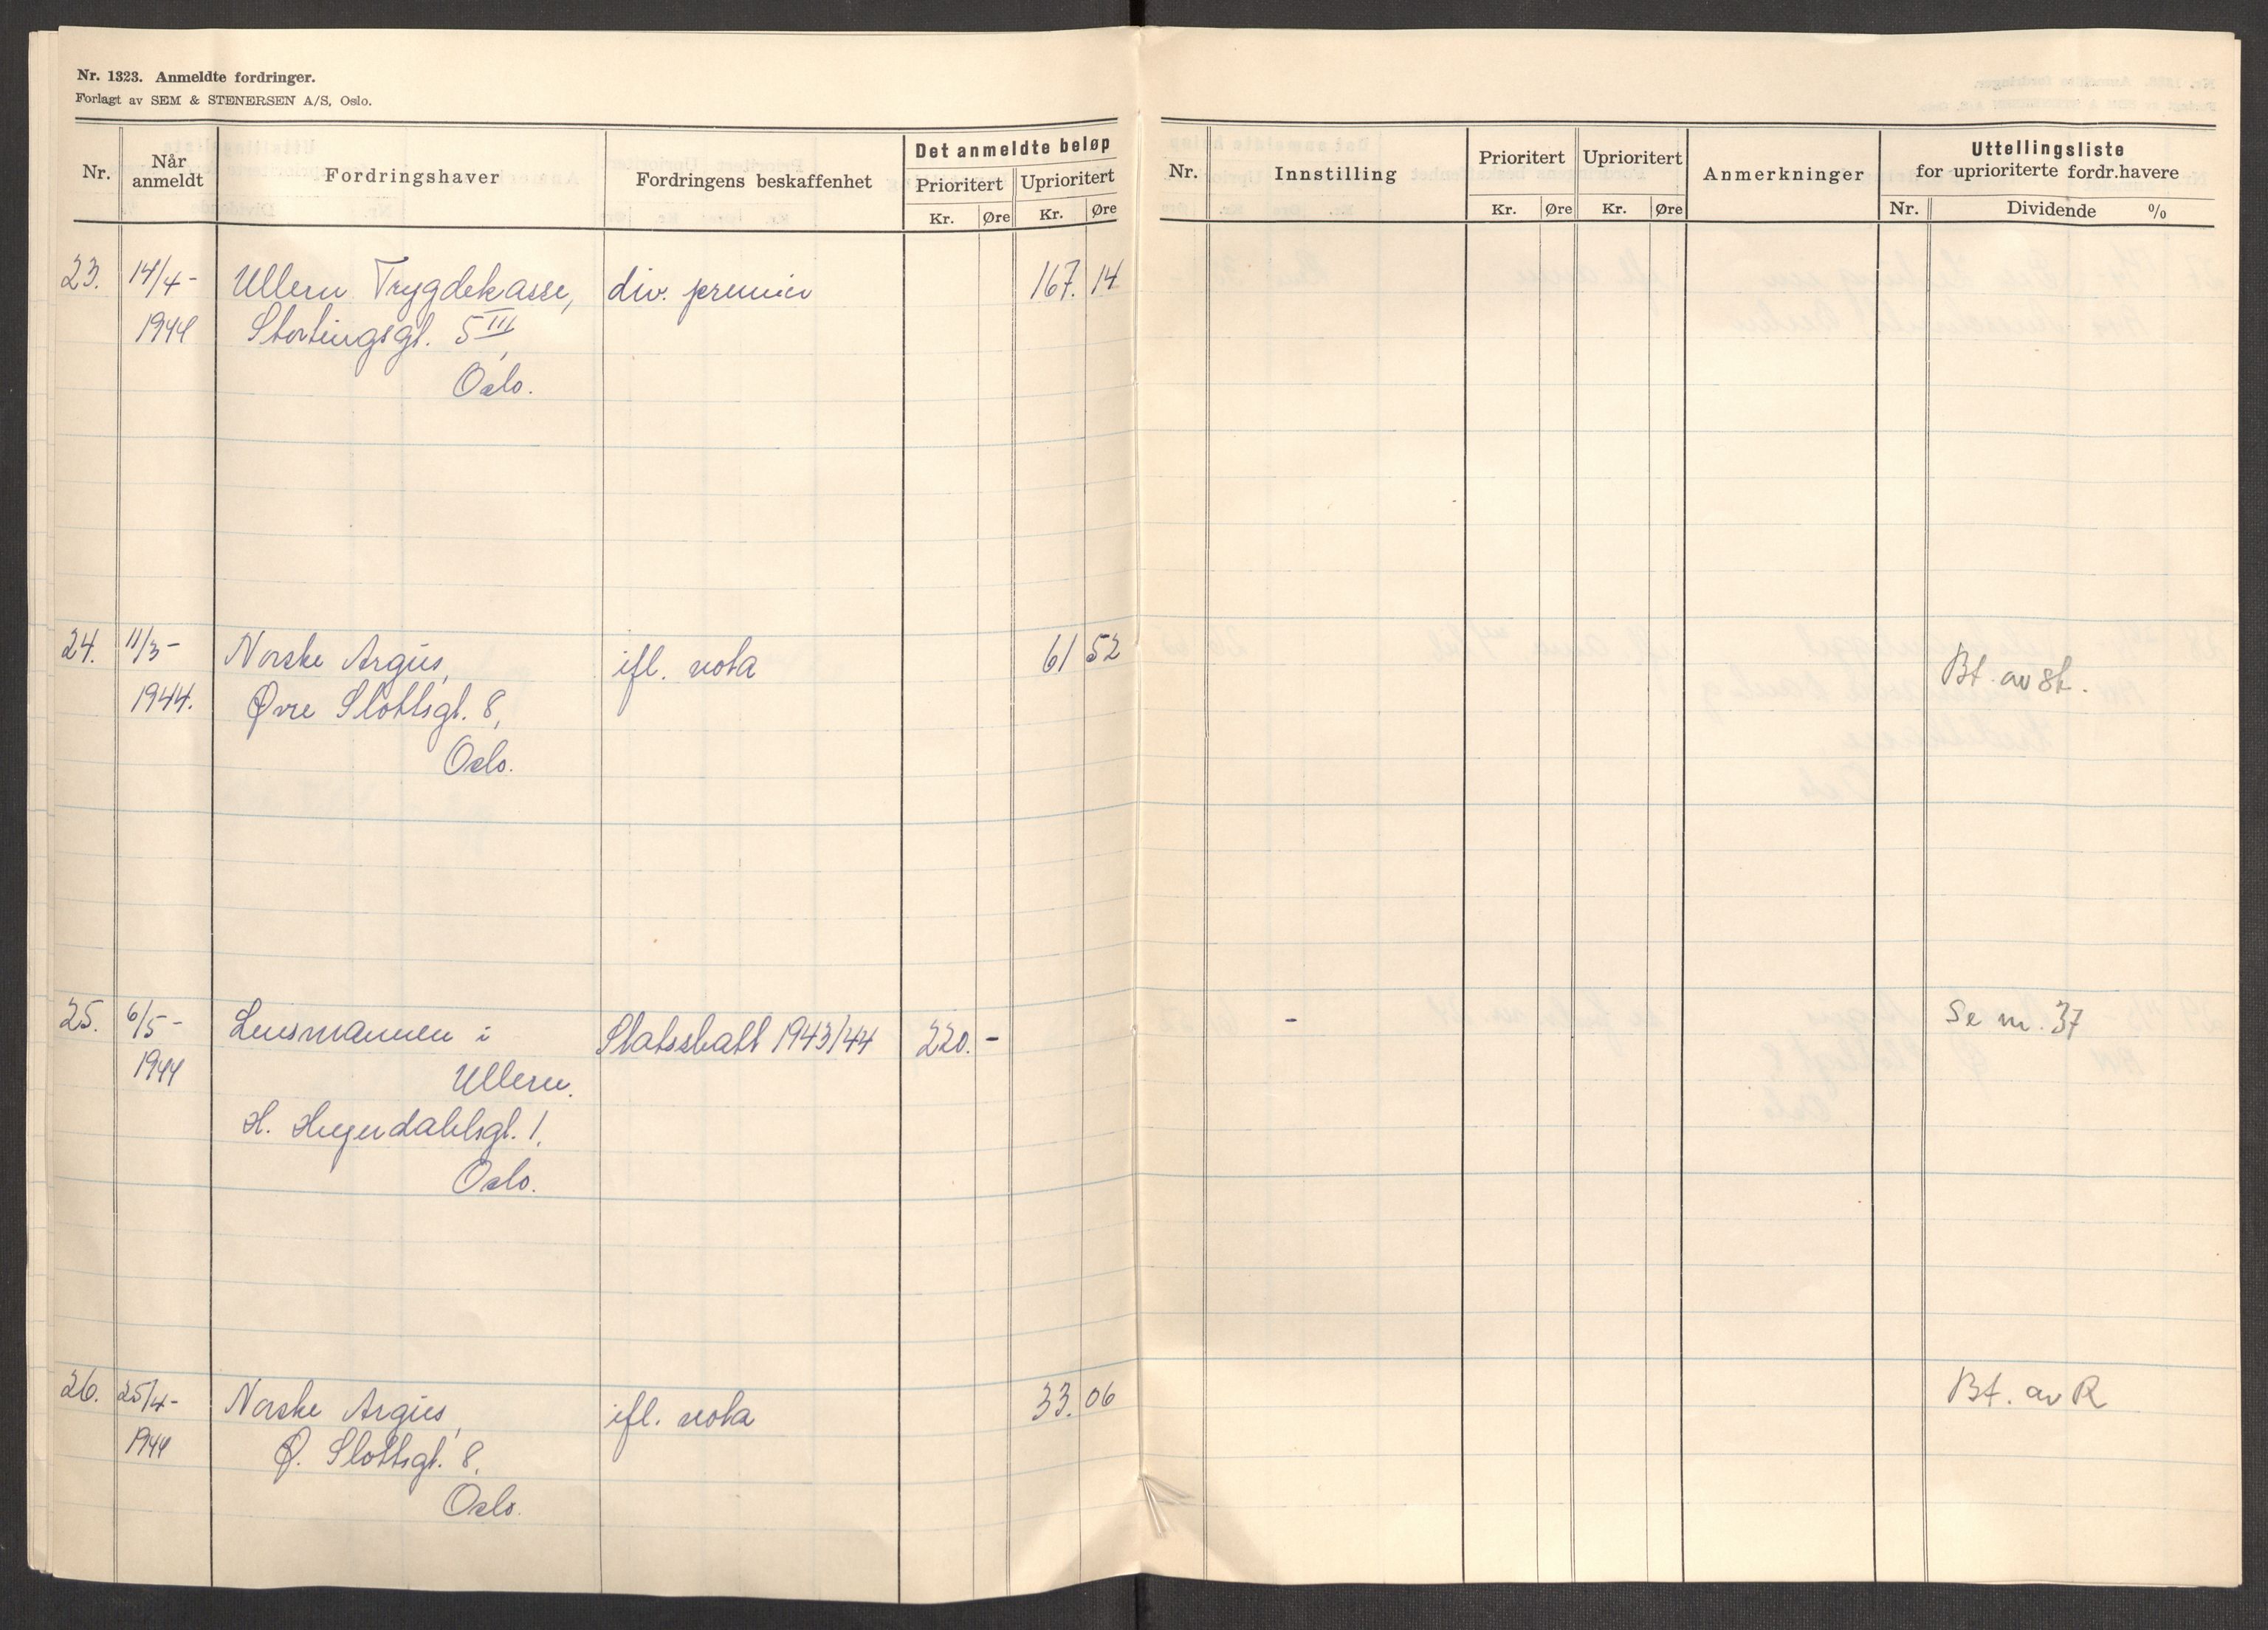 Nr. 1323. Anmeldte fordringer.
Forlagt av SEM & STENERSEN A/S, Oslo.
Nr. Når anmeldt Fordringshaver Fordringens beskaffenhet Det anmeldte beløp
Prioritert Uprioritert
Kr. Øre Kr. Øre
23. 14/4- Ullern Trygdekasse, div. premier 167. 14
1944 Stortingsgt. 5 III,
Oslo.
24. 11/3- Norske Argus, ifl. nota 61 52
1944. Øvre Slottsgt. 8,
Oslo.
25. 6/5- Lensmannen i Statsskatt 1943/44 220. -
1944 Ullern.
H. Heyerdahlsgt. 1.
Oslo.
26. 25/4- Norske Argus, ifl. nota 33. 06
1944 Ø. Slottsgt. 8.
Oslo.
Nr. Innstilling Prioritert Uprioritert Anmerkninger Uttellingsliste
for uprioriterte fordr.havere
Kr. Øre Kr. Øre Nr. Dividende %
Bt. av Sk.
- Se nr. 37
Bt. av R